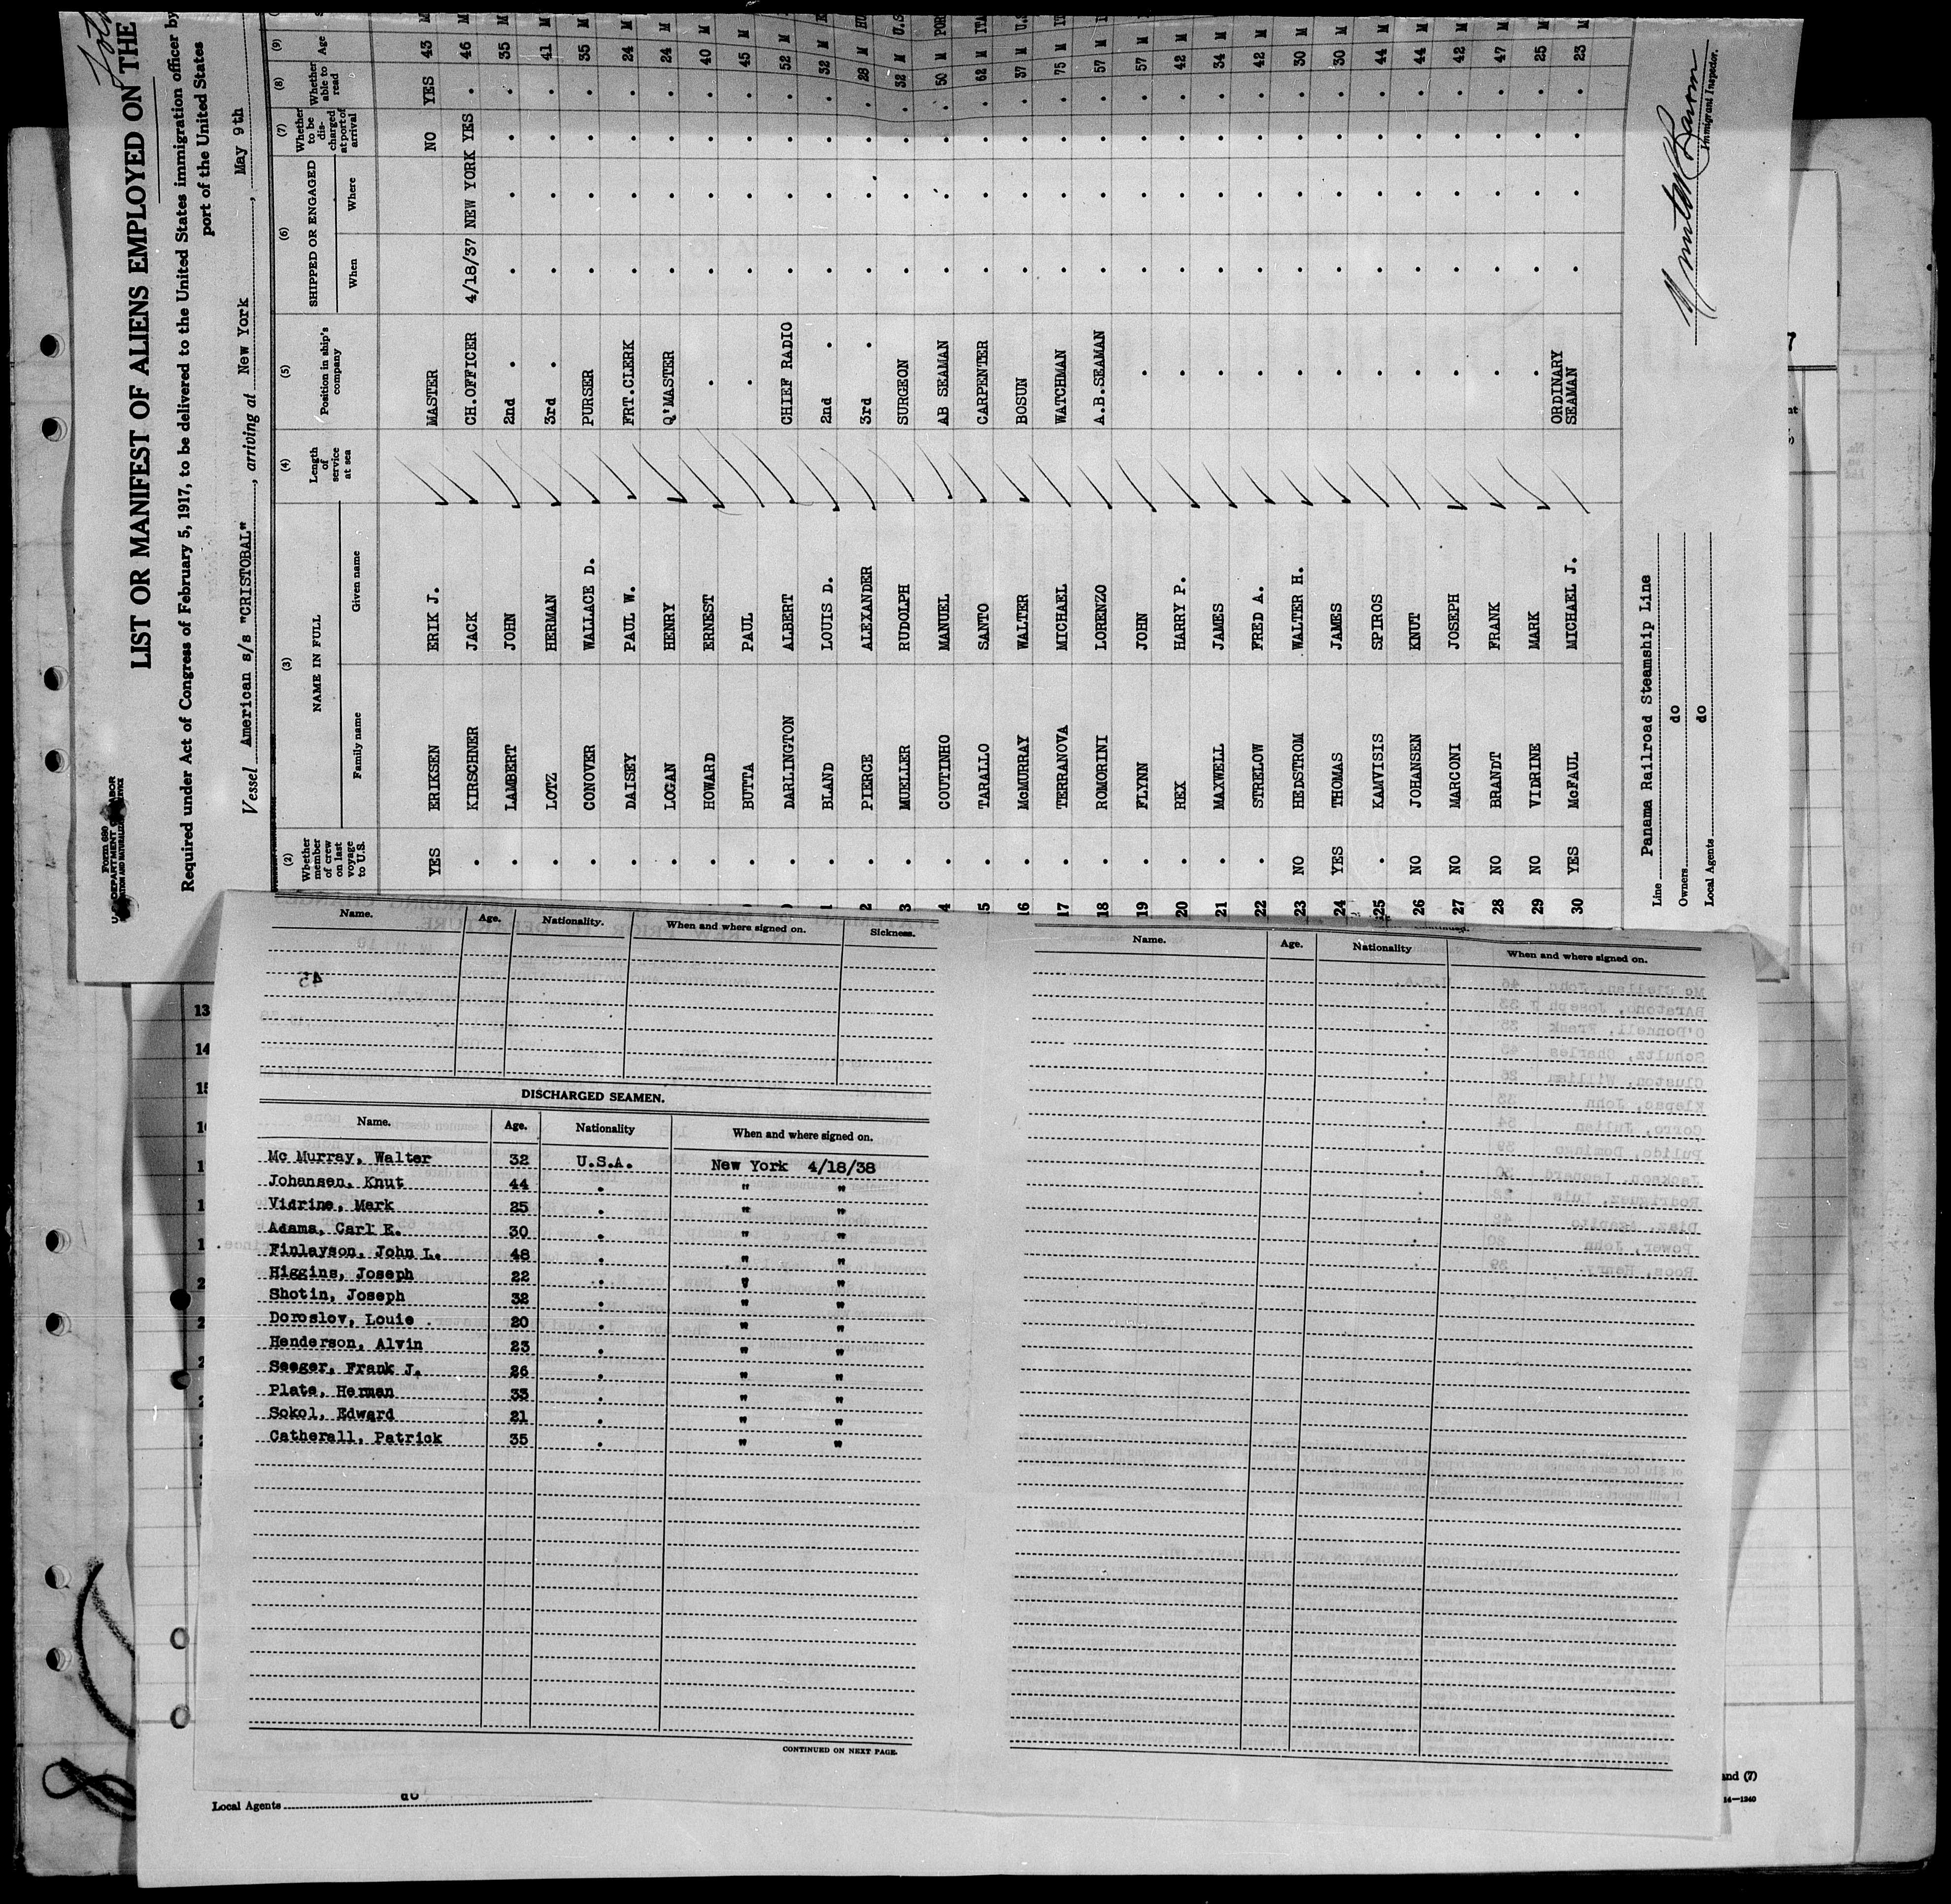 LIST OR MANIFEST OF ALIENS EMPLOYED ON THE
Required under Act of Congress of February 5, 1917, to be delivered to the United States immigration officer by
port of the United States
Form 680
Vessel American s/s "CRISTOBAL", arriving at New York, May 9th
(2) (3) (4) (5) (6) (7) (8) (9)
Whether member of crew on last voyage to U.S. NAME IN FULL Length of service at sea Position in ship's company SHIPPED OR ENGAGED Whether to be discharged at port of arrival Whether able to read Age
Family name Given name When Where
YES ERIKSEN ERIK J. MASTER NO YES 43 M
. KIRSCHNER JACK CH.OFFICER 4/18/37 NEW YORK YES . 46 M
. LAMBERT JOHN 2nd . . . . . 35 M
. LOTZ HERMAN 3rd . . . . . 41 M
. CONOVER WALLACE D. PURSER . . . . 35 M
. DAISEY PAUL W. FRT.CLERK . . . . 24 M
. LOGAN HENRY Q'MASTER . . . . 24 M
. HOWARD ERNEST . . . . . 40 M
. BUTTA PAUL . . . . . 45 M
. DARLINGTON ALBERT CHIEF RADIO . . . . 52 M
1 . BLAND LOUIS D. 2nd . . . . . 32 M
2 . PIERCE ALEXANDER 3rd . . . . . 28 M
3 . MUELLER RUDOLPH SURGEON . . . . 32 M U.S
4 . COUTINHO MANUEL AB SEAMAN . . . . 50 M POR
5 . TARALLO SANTO CARPENTER . . . . 62 M ITA
16 . McMURRAY WALTER BOSUN . . . . 37 M U.S
17 . TERRANOVA MICHAEL WATCHMAN . . . . 75 M IT
18 . ROMORINI LORENZO A.B.SEAMAN . . . . 57 M
19 . FLYNN JOHN . . . . . 57 M
20 . REX HARRY P. . . . . . 42 M
21 . MAXWELL JAMES . . . . . 34 M
22 . STRELOW FRED A. . . . . . 42 M
23 NO HEDSTROM WALTER H. . . . . . 30 M
24 YES THOMAS JAMES . . . . . 30 M
25 . KAMVISIS SPIROS . . . . . 44 M
26 NO JOHANSEN KNUT . . . . . 44 M
27 NO MARCONI JOSEPH . . . . . 42 M
28 NO BRANDT FRANK . . . . . 47 M
29 NO VIDRINE MARK . . . . . 25 M
30 YES McFAUL MICHAEL J. ORDINARY SEAMAN . . . . 23 M
Line Panama Railroad Steamship Line
Owners do
Local Agents do
Immigrant Inspector.
Name. Age. Nationality. When and where signed on. Sickness.
DISCHARGED SEAMEN.
Name. Age. Nationality When and where signed on.
Mc Murray, Walter 32 U.S.A. New York 4/18/38
Johansen, Knut 44 . " "
Vidrine, Mark 25 . " "
Adams, Carl E. 30 . " "
Finlayson, John L. 48 . " "
Higgins, Joseph 22 . " "
Shotin, Joseph 32 . " "
Doroslov, Louie 20 . " "
Henderson, Alvin 23 . " "
Seeger, Frank J. 26 . " "
Plate, Herman 33 . " "
Sokol, Edward 21 . " "
Catherall, Patrick 35 . " "
CONTINUED ON NEXT PAGE.
Name. Age. Nationality When and where signed on.
13
14
15
Local Agents
and (7)
14—1240